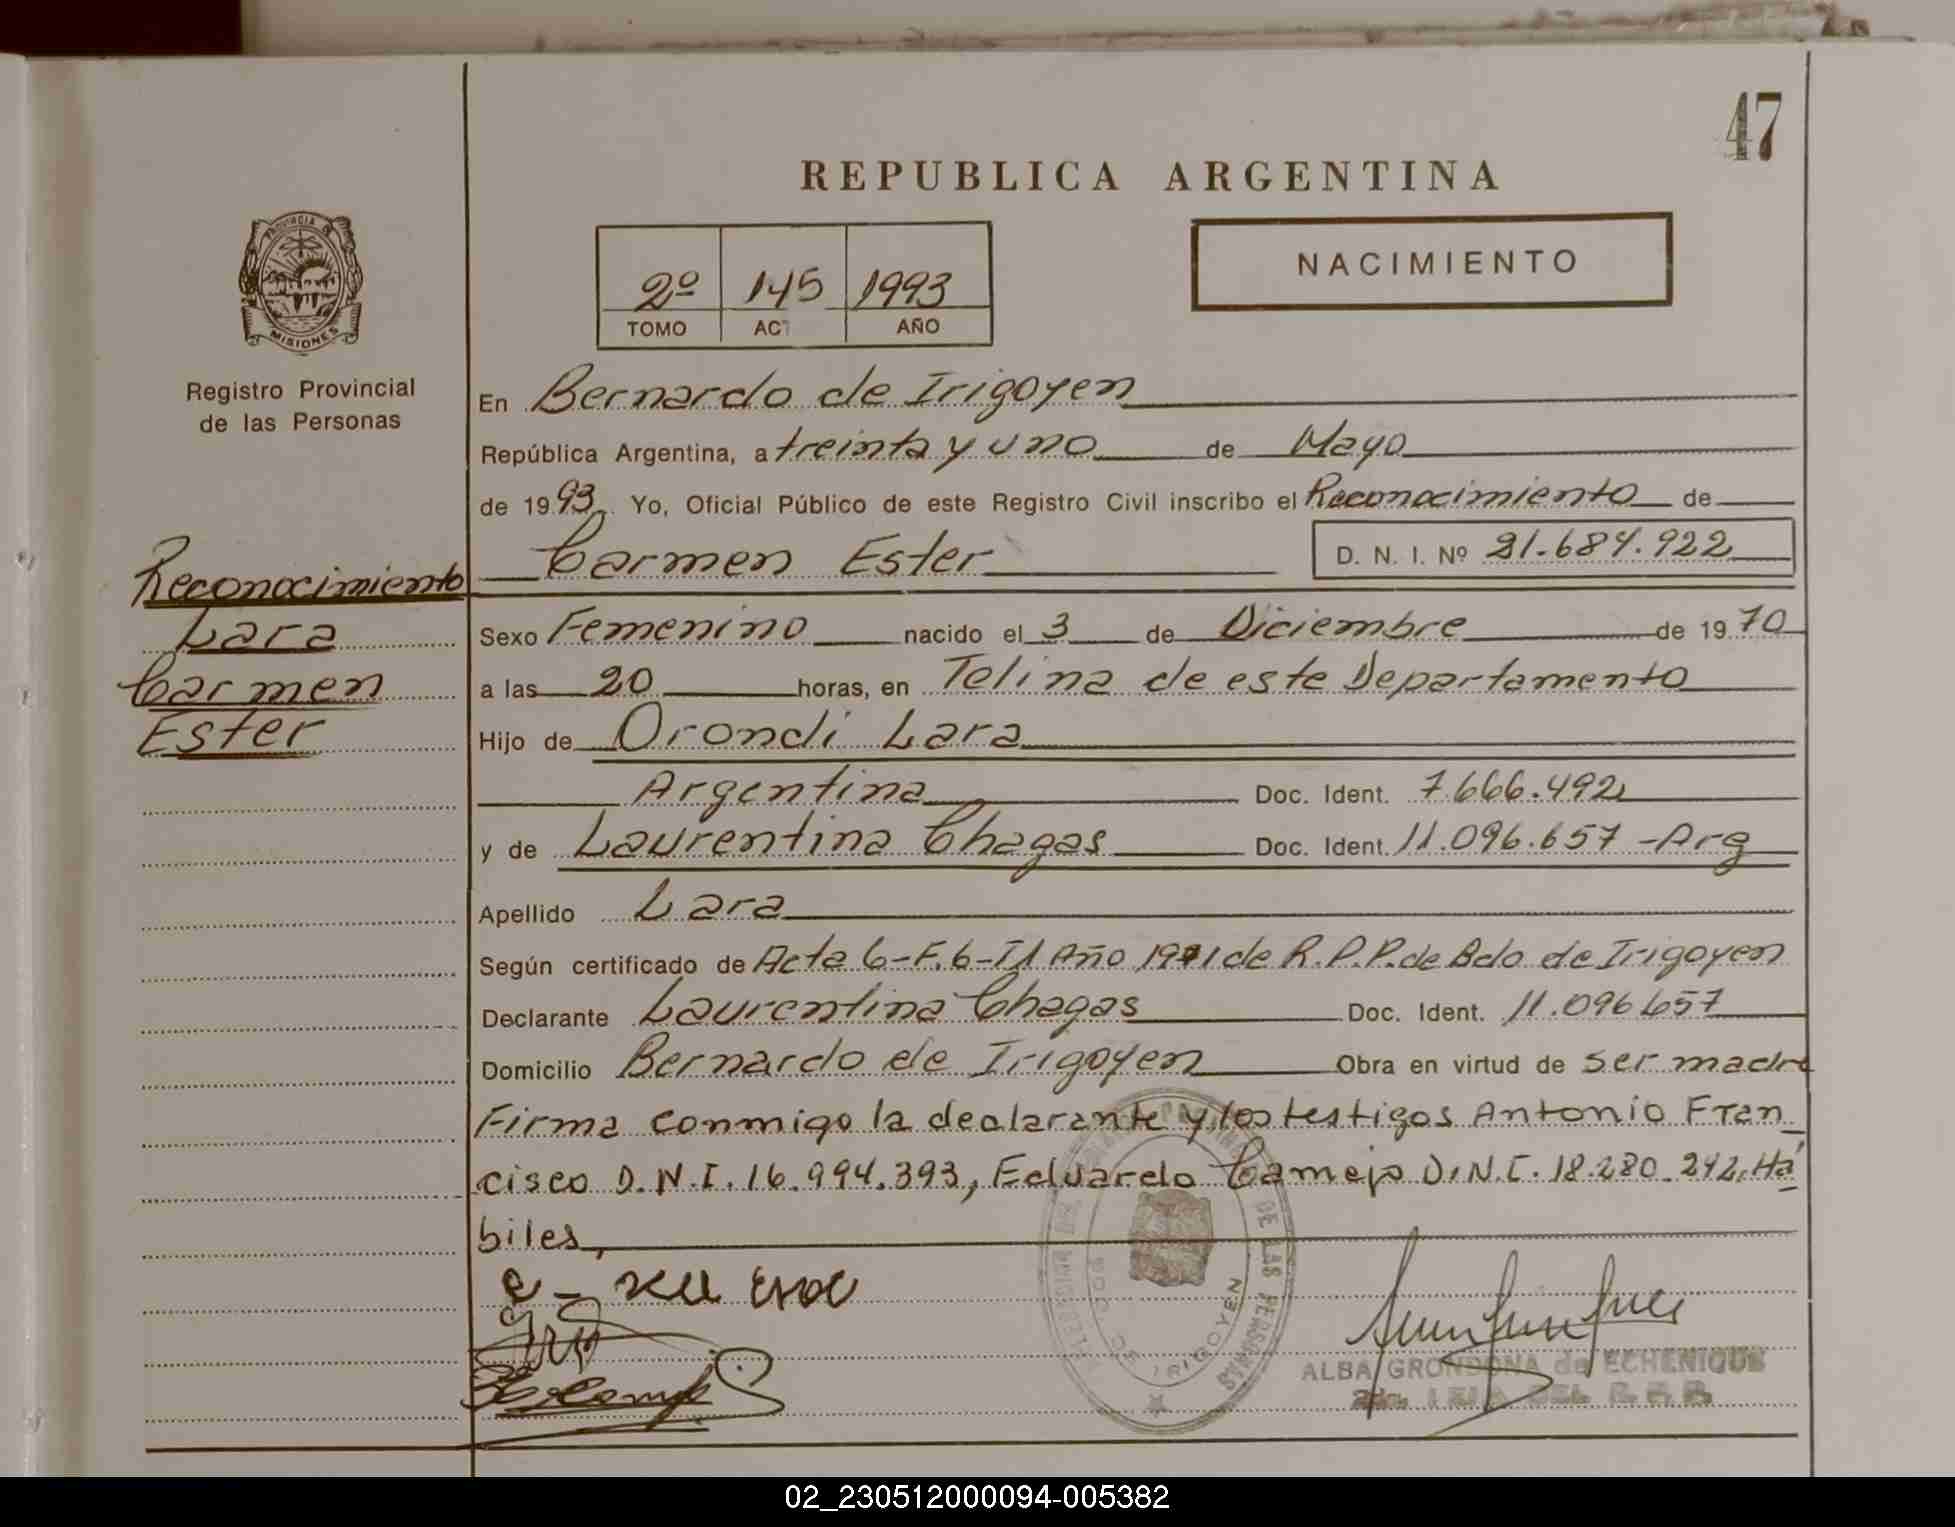 47
REPUBLICA ARGENTINA
PROVINCIA DE
MISIONES
2º 145 1993
TOMO ACT AÑO
NACIMIENTO
Registro Provincial
de las Personas
En Bernardo de Irigoyen
República Argentina, a treinta y uno de Mayo
de 1993. Yo, Oficial Público de este Registro Civil inscribo el Reconocimiento de
Carmen Ester D. N. I. Nº 21.684.922
Reconocimiento
Lara
Carmen
Ester
Sexo Femenino nacido el 3 de Diciembre de 1970
a las 20 horas, en Telina de este Departamento
Hijo de Orondi Lara
Argentina Doc. Ident. 7.666.492
y de Laurentina Chagas Doc. Ident. 11.096.657 -Arg
Apellido Lara
Según certificado de Acta 6-F.6-T1 Año 1971 de R.P.P. de Bdo de Irigoyen
Declarante Laurentina Chagas Doc. Ident. 11.096657
Domicilio Bernardo de Irigoyen Obra en virtud de ser madre
Firma conmigo la declarante y los testigos Antonio Fran_
cisco D.N.I. 16.994.393, Eduardo Camejo D.N.I. 18.280.242, Há
biles,
DE LAS PERSONAS
BDO. DE IRIGOYEN
ALBA GRONDONA de ECHENIQUE
02_230512000094-005382